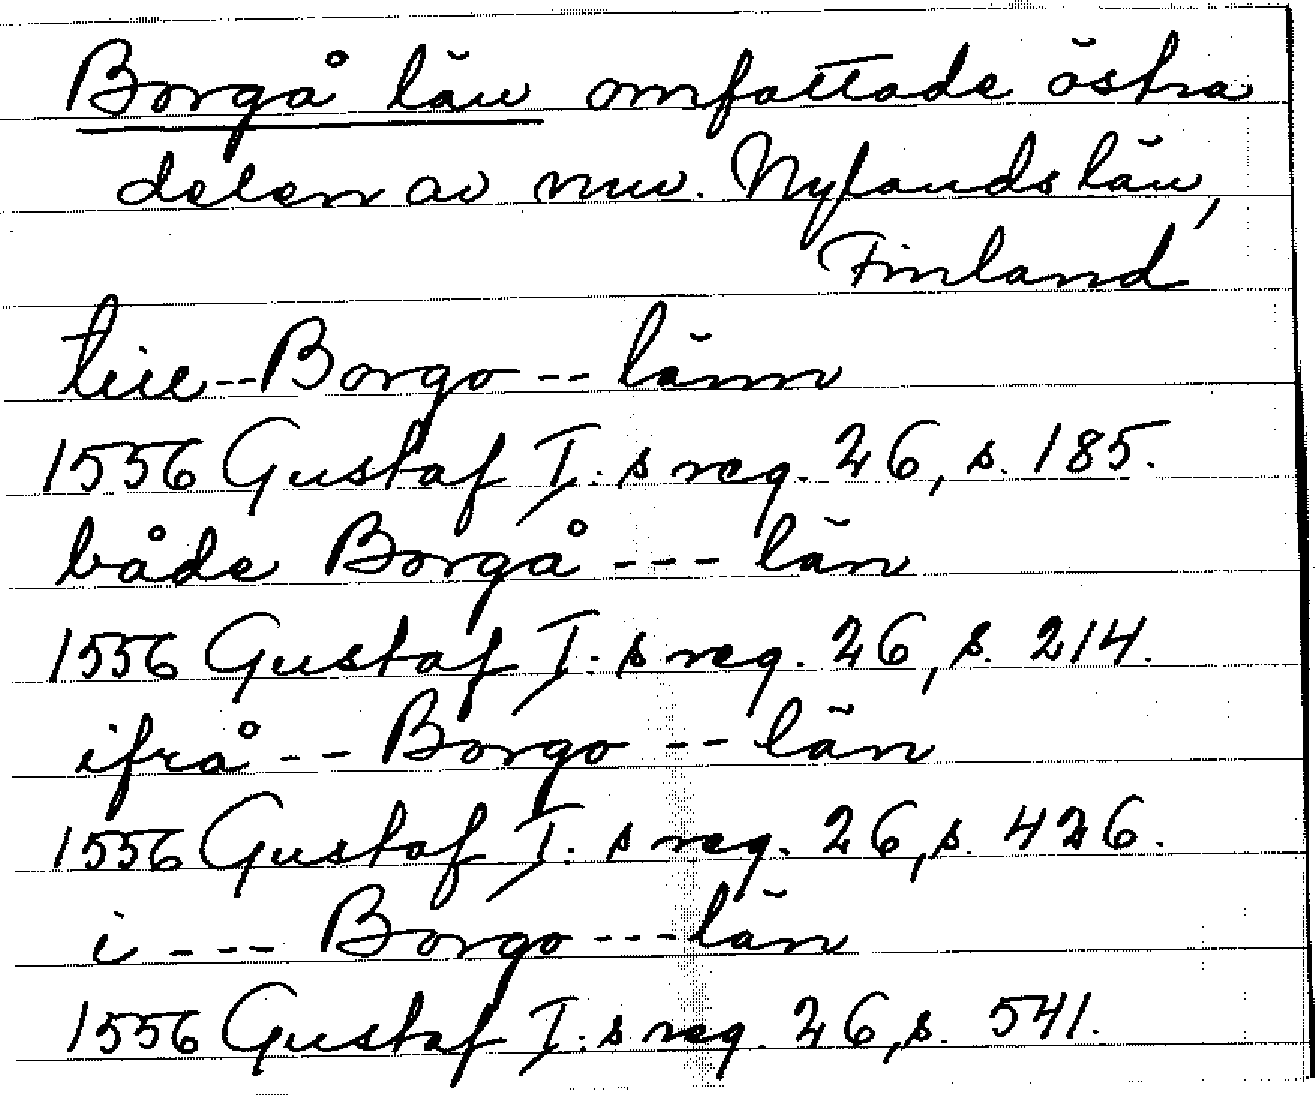 Borgå län omfattade östra
delen av nuv. Nylands län,
Finland
till -- Borgo -- länn
1556 Gustaf I:s reg. 26, s. 185.
både Borgå --- län
1556 Gustaf I:s reg. 26, s. 214.
ifrå -- Borgo -- län
1556 Gustaf I:s reg. 26, s. 426.
i --- Borgo --- län
1556 Gustaf I:s reg. 26, s. 541.